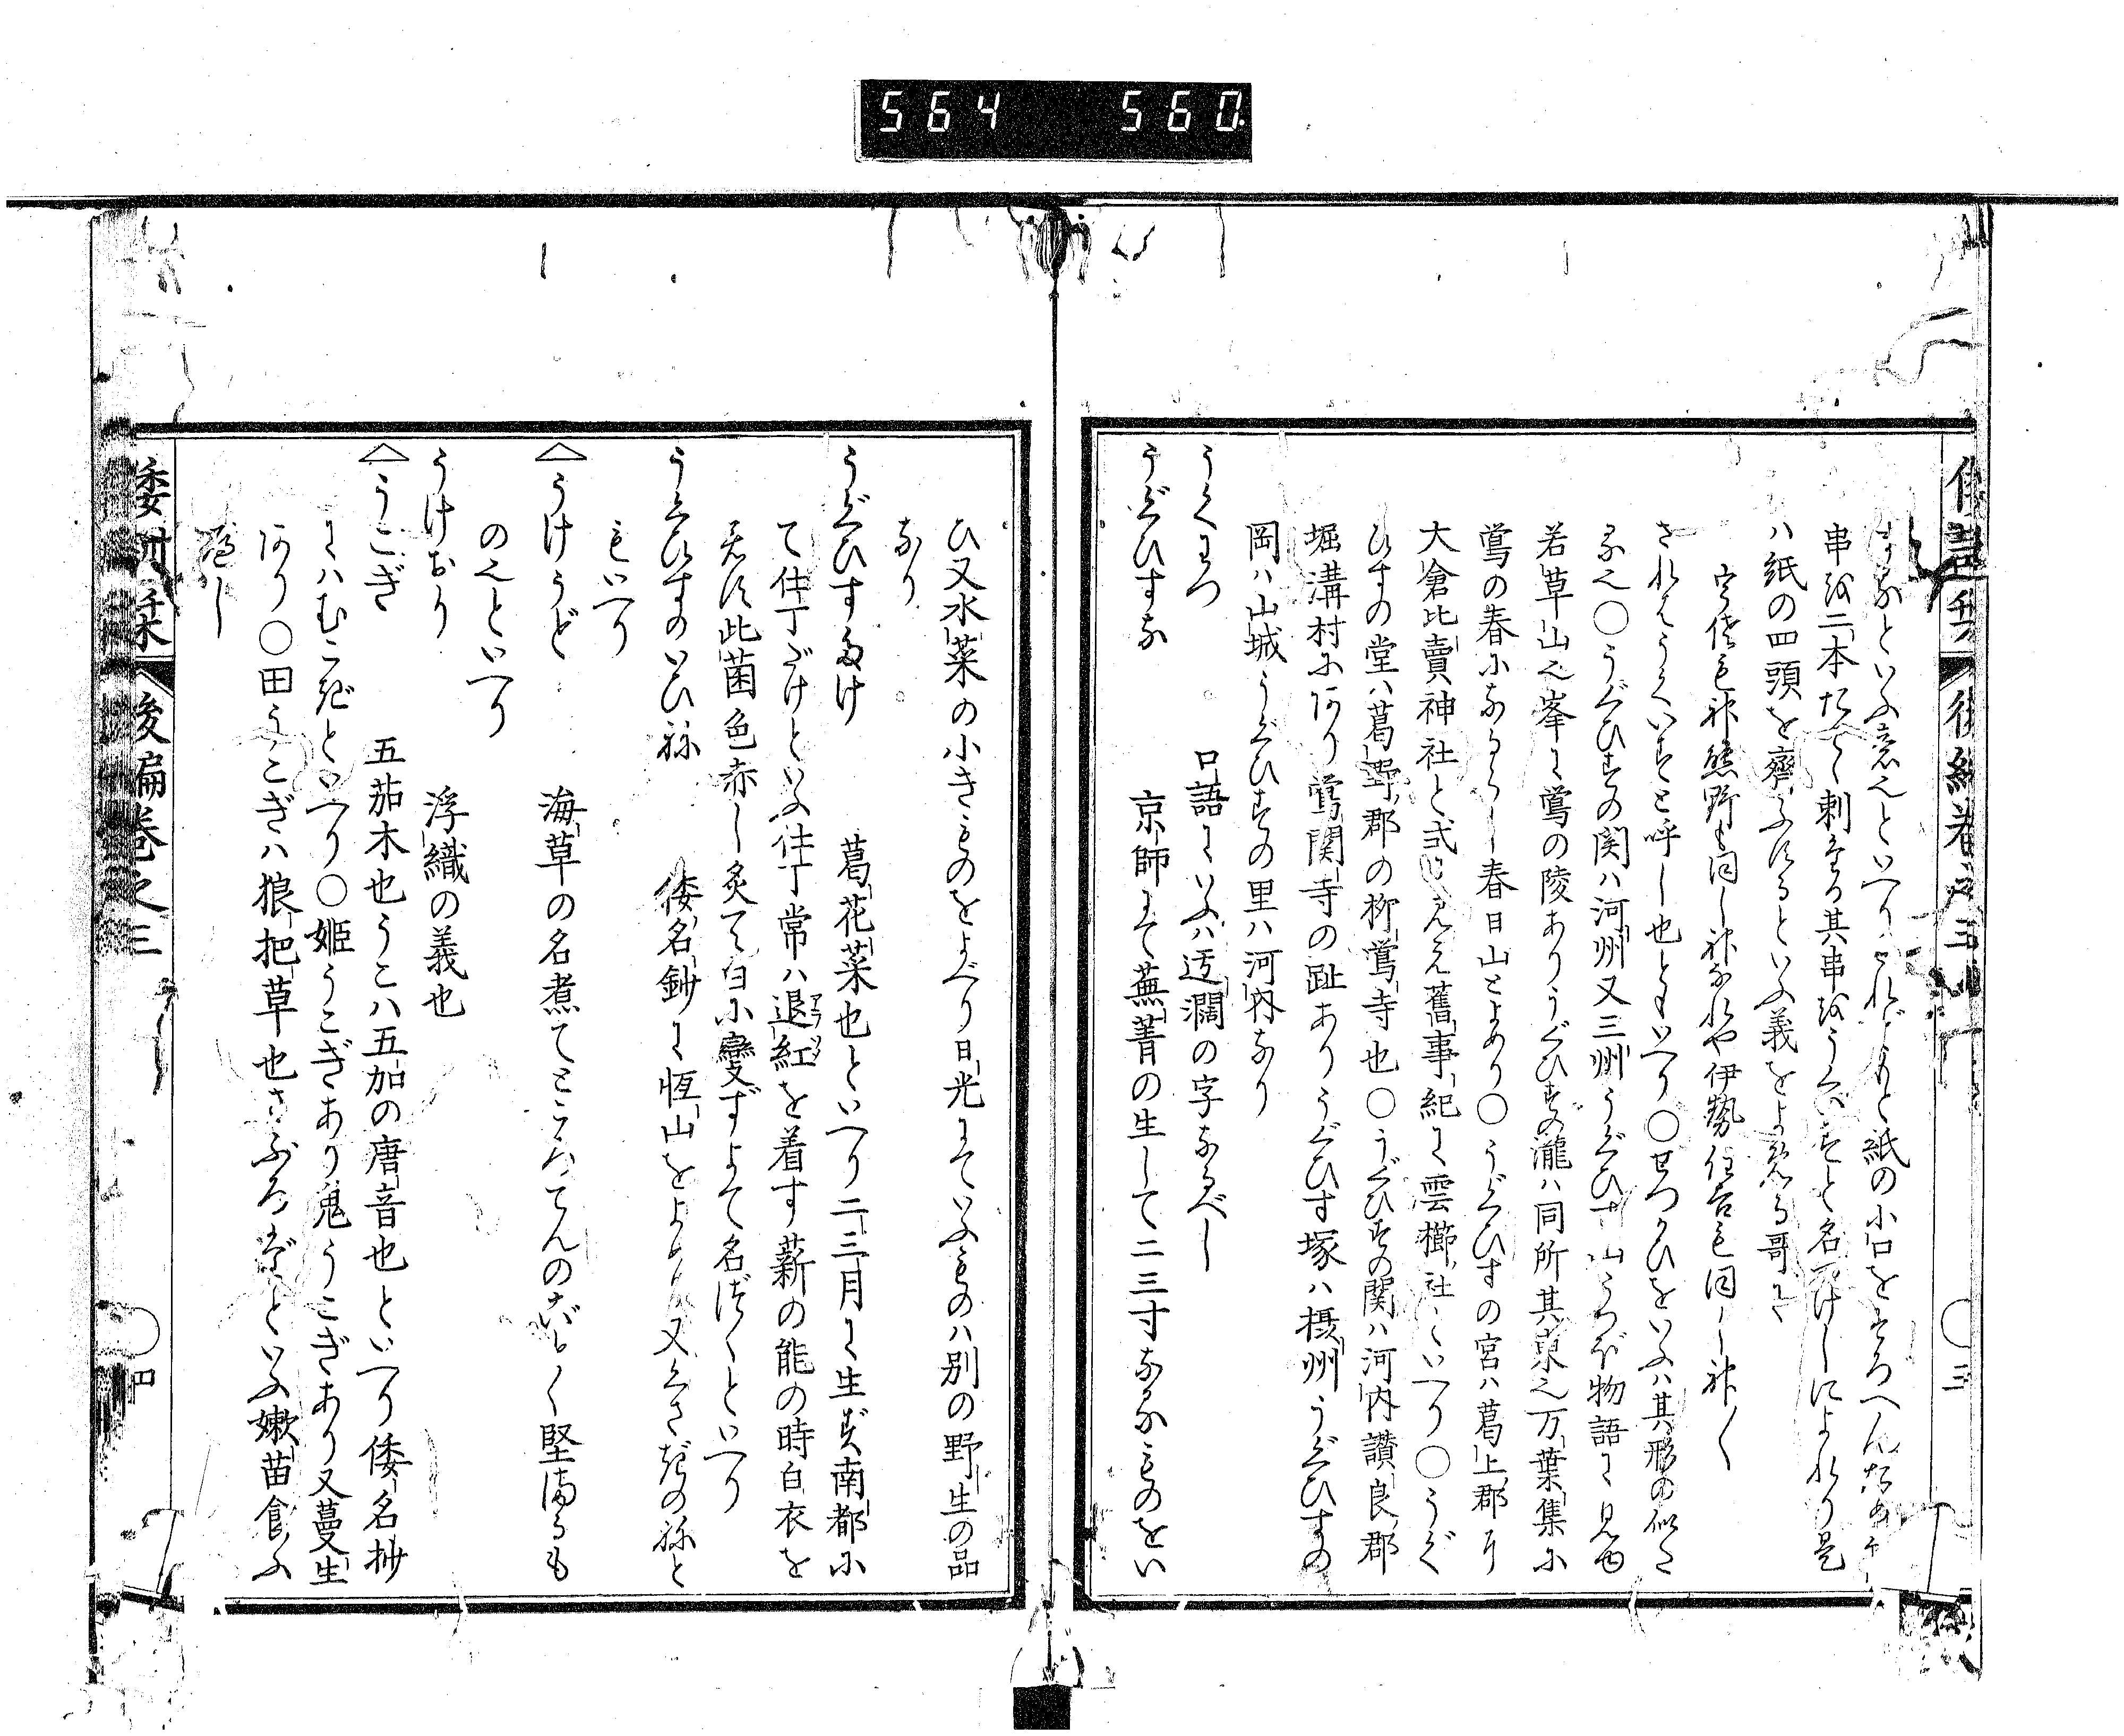 564 560
串を二本たてゝ刺せる其串をうくひすと名つけしによれり是
ハ紙の四頭を齊ふするといふ義をよめる哥に
熊野も同し神なれや伊勢住吉も同し神〳〵
さればうくひすと呼し也ともいへり〇せつかひをいふハ其形の似た
る也〇うぐひすの関ハ河州又三州うぐひす山うつほ物語に見ゆ
若草山也峯に鶯の陵ありうぐひすの瀧ハ同所其東也万葉集に
鶯の春になるらし春日山とよめり〇うぐひすの宮ハ葛上郡
大倉比賣神社と式に見え舊事紀に雲櫛社といへり〇うぐ
ひすの堂ハ葛野郡の栁鶯寺也〇うぐひすの関ハ河内讃良郡
堀溝村にあり鶯関寺の趾ありうぐひす塚ハ摂州うぐひすの
岡ハ山城うぐひすの里ハ河内なり
うくわつ　口語にいふハ迂濶の字なるべし
うぐひすな　京師にて蕪菁の生して二三寸なるものをい
三
ひ又水菜の小きものをよべり日光にていふものハ別の野生の品
なり
うぐひすたけ　葛花菜也といへり二三月に生ず南都に
て仕丁だけといふ仕丁常ハ退紅を着す薪の能の時白衣を
着す此菌色赤し炙て白に變ずよて名づくといへり
うぐひすのいひね　倭名鈔に恒山をよめり又くさぎのねと
もいへり
うけうど　海草の名煮てところてんのごとく堅まるも
の也といへり
うけおり　浮織の義也
うこぎ　五茄木也うこハ五加の唐音也といへり倭名抄
にハむこぎといへり〇姫うこぎあり鬼うこぎあり又蔓生
あり〇田うこぎハ狼把草也さぶろぎといふ嫩苗食ふ
べし
倭訓栞　後編巻之三
四